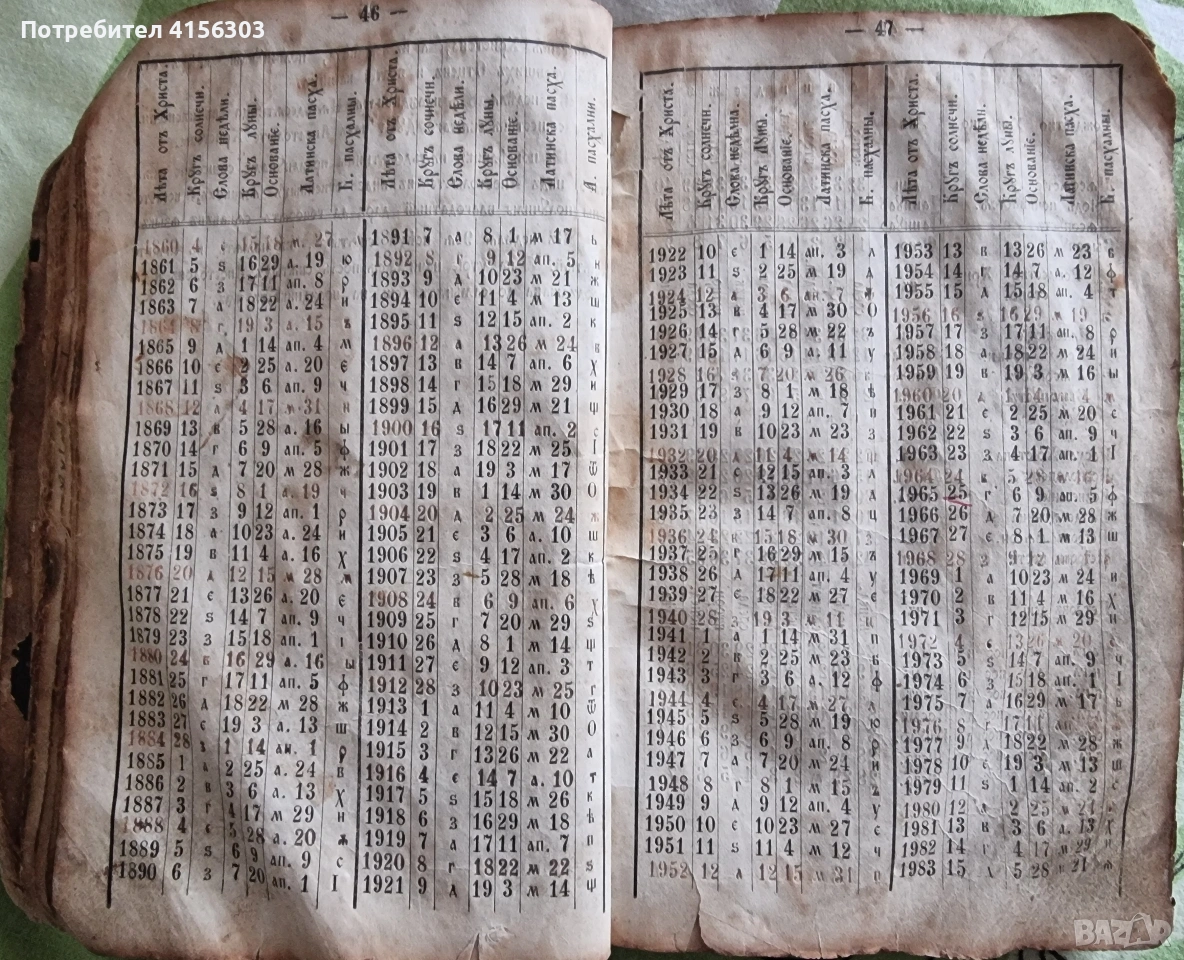 Потребител 4156303
— 46 —
Лѣта отъ Христа. Кругъ солнечн. Слова недѣли. Кругъ луны. Основанїе. Латинска пасха. К. пасхалны.
1860 4 є 15 18 м. 27
1861 5 ѕ 16 29 а. 19 ю
1862 6 з 17 11 ап. 8 р
1863 7 а 18 22 а. 24 и
1864 8 г 19 3 а. 15 ъ
1865 9 д 1 14 ап. 4 м
1866 10 є 2 25 а. 20 є
1867 11 ѕ 3 6 ап. 9 ч
1868 12 а 4 17 м. 31 н
1869 13 в 5 28 а. 16 ы
1870 14 г 6 9 ап. 5 ф
1871 15 д 7 20 м 28 ж
1872 16 ѕ 8 1 а. 19 ч
1873 17 з 9 12 ап. 1 р
1874 18 а 10 23 а. 24 и
1875 19 в 11 4 а. 16 χ
1876 20 д 12 15 м 28 м
1877 21 є 13 26 а. 20 є
1878 22 ѕ 14 7 ап. 9 ч
1879 23 з 15 18 ап. 1 ı
1880 24 в 16 29 а. 16 ы
1881 25 г 17 11 ап. 5 ф
1882 26 д 18 22 м 28 ж
1883 27 є 19 3 а. 13 ш
1884 28 1 14 ап. 1 р
1885 1 а 2 25 а. 24 в
1886 2 в 3 6 а. 13 χ
1887 3 г 4 17 м 29 и
1888 4 є 5 28 а. 20 ѫ
1889 5 ѕ 6 9 ап. 9 с
1890 6 з 7 20 ап. 1 І
Лѣта отъ Христа. Кругъ солнечн. Слова недѣли. Кругъ луны. Основанїе. Латинска пасха. К. пасхални.
1891 7 а 8 1 м 17 ь
1892 8 г 9 12 ап. 5 н
1893 9 д 10 23 м 21 ж
1894 10 є 11 4 м 13 ш
1895 11 ѕ 12 15 ап. 2 к
1896 12 а 13 26 м 24 в
1897 13 в 14 7 ап. 6 χ
1898 14 г 15 18 м 29 и
1899 15 д 16 29 м 21 ѱ
1900 16 ѕ 17 11 ап. 2 с
1901 17 з 18 22 м 25 І
1902 18 а 19 3 м 17 ѿ
1903 19 в 1 14 м 30 О
1904 20 д 2 25 м 24 ж
1905 21 є 3 6 а. 10 ш
1906 22 ѕ 4 17 ап. 2 к
1907 23 з 5 28 м 18 ѣ
1908 24 в 6 9 ап. 6 χ
1909 25 г 7 20 м 29 ѕ
1910 26 д 8 1 м 14 ѱ
1911 27 є 9 12 ап. 3 т
1912 28 з 10 23 м 25 г
1913 1 а 11 4 м 10 ѿ
1914 2 в 12 15 м 30 О
1915 3 г 13 26 м 22 л
1916 4 є 14 7 а. 10 т
1917 5 ѕ 15 18 м 26 к
1918 6 з 16 29 м 18 ѣ
1919 7 а 17 11 ап. 7 п
1920 8 г 18 22 м 22 ѕ
1921 9 д 19 3 м 14 ѱ
— 47 —
Лѣта отъ Христа. Кругъ солнечн. Слова недѣлна. Кругъ луны. Основанїе. Латинска пасха. К. пасхалны.
1922 10 є 1 14 ап. 3 л
1923 11 ѕ 2 25 м 19 д
1924 12 а 3 6 ап. 7 ѫ
1925 13 в 4 17 м 30 О
1926 14 г 5 28 м 22 ъ
1927 15 д 6 9 а. 11 у
1928 16 ѕ 7 20 м 26
1929 17 з 8 1 м 18 ѣ
1930 18 а 9 12 ап. 7 п
1931 19 в 10 23 м 23 з
1932 20 д 11 4 м 14
1933 21 є 12 15 ап. 3 л
1934 22 ѕ 13 26 м 19 д
1935 23 з 14 7 ап. 8 ц
1936 24 в 15 18 м 30 з
1937 25 г 16 29 м 15 ъ
1938 26 д 17 11 ап. 4 у
1939 27 є 18 22 м 27 є
1940 28 з 19 3 м 11 ц
1941 1 а 1 14 м 31 п
1942 2 в 2 25 м 23 в
1943 3 г 3 6 а. 12 ф
1944 4 є 4 17 м 27 л
1945 5 ѕ 5 28 м 19 ю
1946 6 з 6 9 ап. 8 р
1947 7 а 7 20 м 24 и
1948 8 г 8 1 м 15
1949 9 д 9 12 ап. 4 у
1950 10 є 10 23 м 27 с
1951 11 ѕ 11 4 м 12 ч
1952 12 а 12 15 м 31 о
Лѣта от Христа. Кругъ солнечн. Слова недѣли. Кругъ луны. Основанїе. Латинска пасха. К. пасхалны.
1953 13 в 13 26 м 23 в
1954 14 г 14 7 а. 12 ф
1955 15 д 15 18 ап. 4 т
1956 16 ѕ 16 29 м 19
1957 17 з 17 11 ап. 8 р
1958 18 а 18 22 м 24 и
1959 19 в 19 3 м 16 ы
1960 20 д 1 14 ж
1961 21 є 2 25 м 20 с
1962 22 ѕ 3 6 ап. 9 ч
1963 23 з 4 17 ап. 1 І
1964 24 5 28 м
1965 25 г 6 9 ап. 5 ф
1966 26 д 7 20 м 28 ж
1967 27 є 8 1 м 13 ш
1968 28 з 9 12
1969 1 а 10 23 м 24 и
1970 2 в 11 4 м 16 χ
1971 3 г 12 15 м 29 и
1972 4 є 13 26 м 20 є
1973 5 ѕ 14 7 ап. 9 ч
1974 6 з 15 18 ап. 1 І
1975 7 а 16 29 м 17 ь
1976 8 г 17 11 ап
1977 9 д 18 22 м 28 ж
1978 10 є 19 3 м 13 ш
1979 11 ѕ 1 14 ап. 2 с
1980 12 д 2 25 м 21
1981 13 в 3 6 а. 13 χ
1982 14 г 4 17 м 29 и
1983 15 д 5 28 21
BAZAR